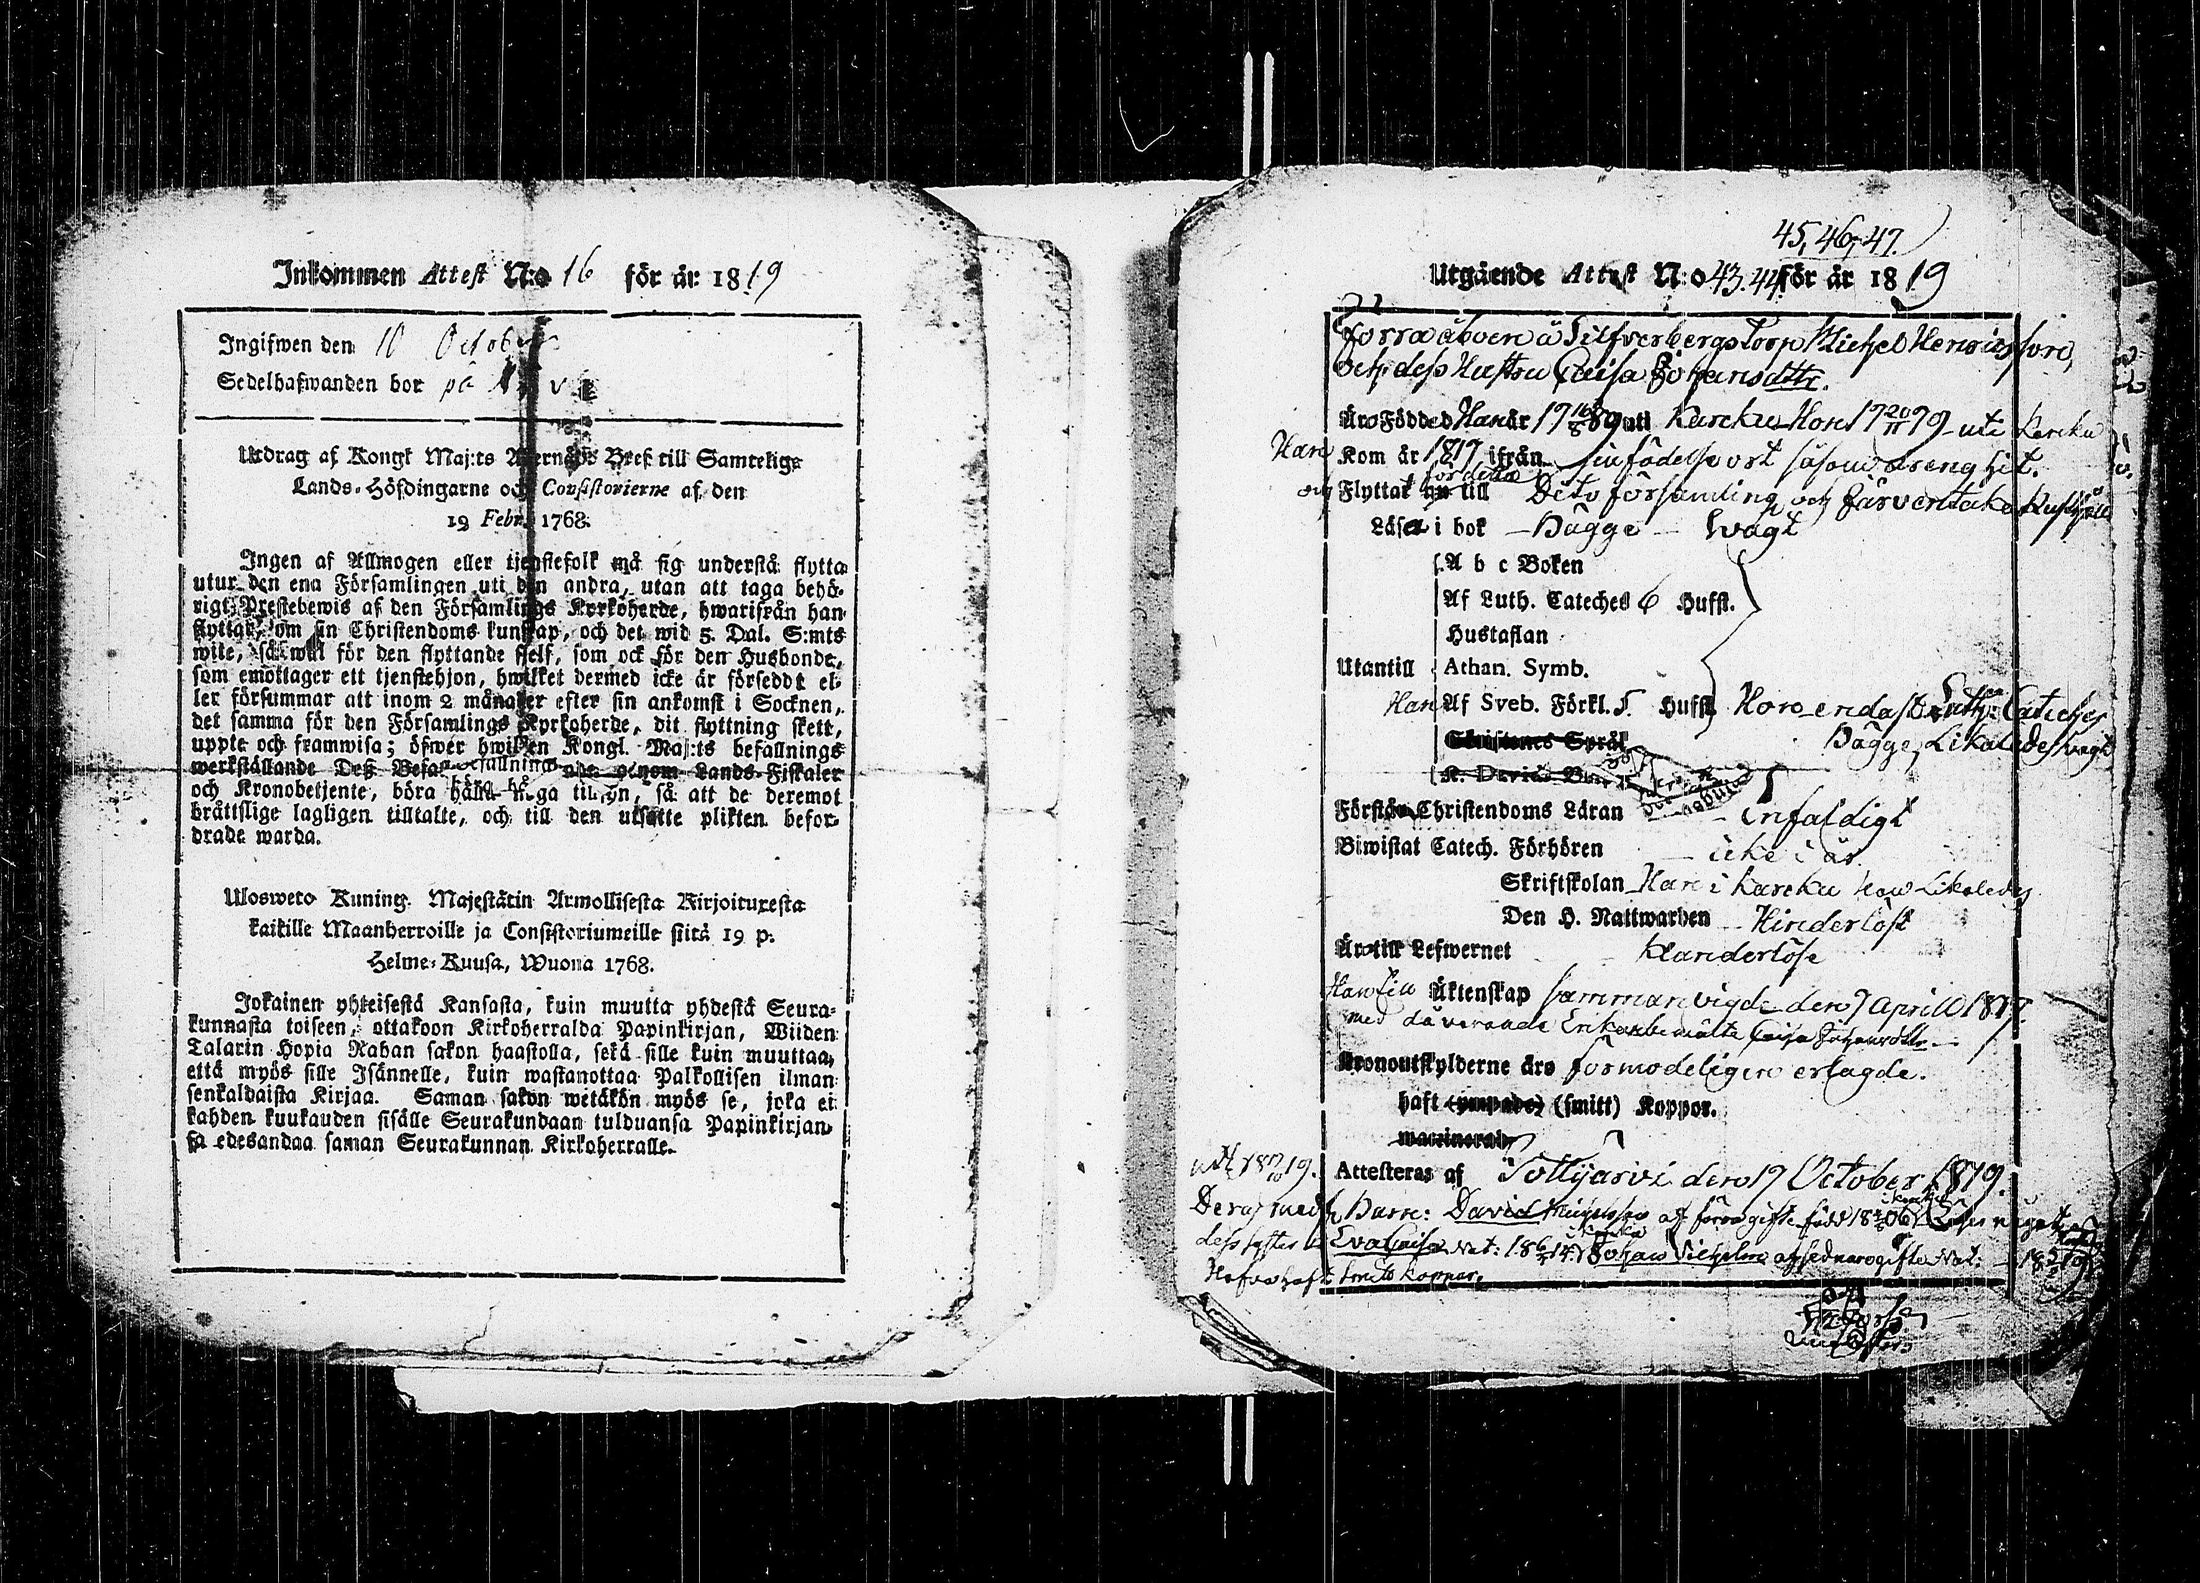 Inkommen Attest N:o 16 för år 1819
Ingifwen den 10 October
Sedelhafwanden bor på
Utdrag af Kongl Maj:ts Allernåd. Bref till Samtelige
Lands-Höfdingarne och Consistorierne af den
19 Febr. 1768.
Ingen af Allmogen eller tjenstefolk må sig understå flytta
utur den ena Församlingen uti den andra, utan att taga behö-
rigt Prestebewis af den Församlings Kyrkoherde, hwarifrån han
flyttat, om sin Christendoms kunskap, och det wid 5 Dal. S:mts
wite, så wäl för den flyttande sjelf, som ock för den Husbonde,
som emottager ett tjenstehjon, hwilket dermed icke är förseddt el-
ler försummar att inom 2 månader efter sin ankomst i Socknen,
det samma för den Församlings Kyrkoherde, dit flyttning skett,
uppte och framwisa; öfwer hwilken Kongl. Maj:ts befallnings
werkställande Deß Befallningshafwande genom Lands-Fiskaler
och Kronobetjente, böra hålla noga tilsyn, så att de deremot
bråttslige lagligen tilltalte, och till den utsatte plikten befor-
drade warda.
Ulosweto Kuning. Majestätin Armollisesta Kirjoituxesta
kaikille Maanherroille ja Consistoriumeille siitä 19 p:
Helme-Kuusa, Wuona 1768.
Jokainen yhteisestä Kansasta, kuin muutta yhdestä Seura-
kunnasta toiseen, ottakoon Kirkoherralda Papinkirjan, Wiiden
Talarin Hopia Rahan sakon haastolla, sekä sille kuin muuttaa,
että myös sille Isännelle, kuin wastanottaa Palkollisen ilman
senkaldaista Kirjaa. Saman sakon wetäkön myös se, joka ei
kahden kuukauden sisälle Seurakundaan tulduansa Papinkirjan-
sa edesandaa saman Seurakunnan Kirkoherralle.
45, 46, 47.
Utgående Attest N:o 43. 44. för år 1819
förra åboen å Silfverbergs Torp Michel Henricsson,
och dess Hustru Caisa Johansdttr.
Äro Födde Han år 17 16/8 89 uti Karcku Hon 17 20/11 79 uti Karcku
Han Kom år 1817 ifrån sin födelse ort såsom dräng hit.
och Flyttat nu till Dito församling och Järventaka Rusthåll
Läsa i bok Bägge wagt
A b c Boken
Af Luth. Cateches 6 Hufst.
Hustaflan
Utantill Athan. Symb.
Han Af Sveb. Förkl. 5. Hufst Hon endast Luth. Cateches
Skriftenes Språk Bägge Likaledes wagt
K. Davids Bot
Förstå Christendoms Läran enfaldigt
Biwistat Catech. Förhören icke i år
Skriftskolan Han i Karcku hon Likaledes
Den H. Nattwarden Hinderlöst
Äro till Lefwernet Klanderlöse
Äktenskap sammanvigde den 7 April 1817.
med dåvarande Enkan bemälte Caisa Johansdttr
Kronoutskylderne äro förmodeligen erlagde.
haft (ympade) (smitt) Koppor.
waccinerad
Attesteras af Tottijärvi den 17 October 1819.
Deras medf. Barn: David Michelsson af förra gifte född 18
dess syster Eva Caisa Nat: Johan Vilhelm af sednare gifte Nat:
Hafva haft smitt koppor.